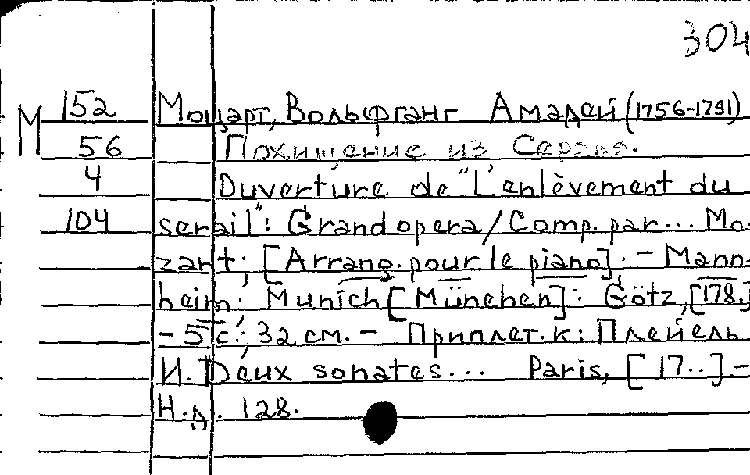 304
М 152 Моцарт, Вольфганг Амадей (1756-1791)
56 Похищение из Сераля.
4 Ouverture de "L'enlèvement du
104 serail": Grand opera / Comp. par... Mo-
zart; [Arrang. pour le piano]. - Mann-
heim; Munich [München]: Götz, [178.]
- 5 с.; 32 см. - Приплет. к: Плейель
И. Deux sonates... Paris, [17..]. -
Н.д. 128.